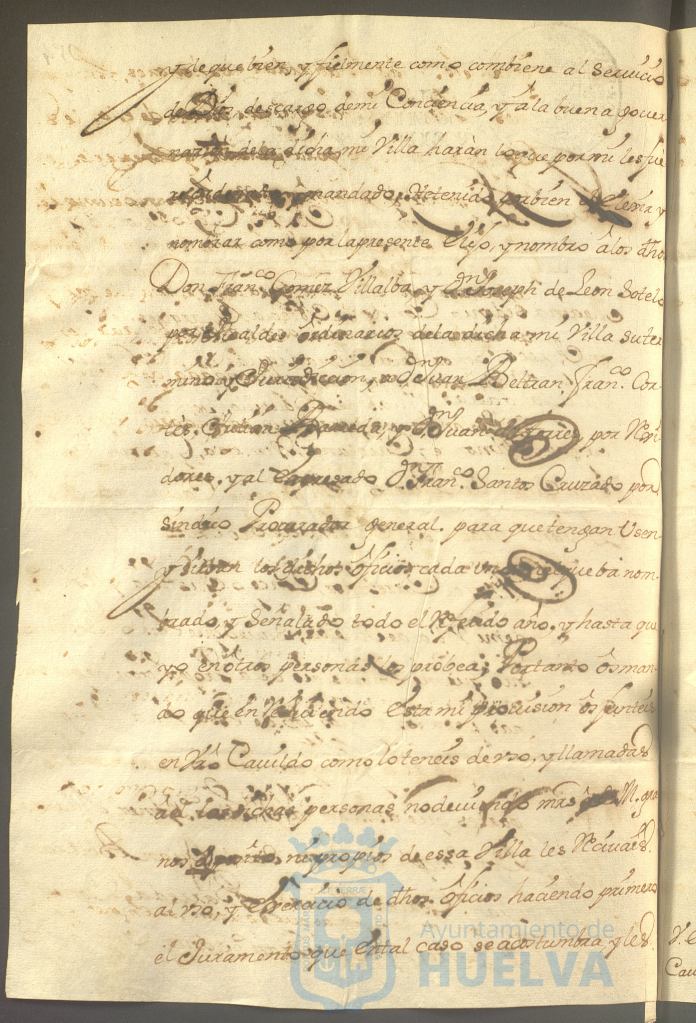 y de que bien, y fielmente como combiene al Servicio
de Dios, descargo de mi Conciencia, y a la buena gover
nazion de la dicha mi Villa haràn lo que por mi les fue
re ordenado, y mandado, He tenido por bien de elexir y
nombrar como por la presente Elijo, y nombro â los dhos
Don Franco. Gomez Villalba, y Dn. Joseph de Leon Sotelo
por Alcaldes ordinarios de la dicha mi Villa su ter
mino y Jurisdicion, y Dn. Juan Beltran Franco. Cor-
tès, Cristian y Dn. Juan por Rexi-
dores, y al Expresado Dn. Franco. Santos Cauzado por
sindico Procurador general. para que tengan Usen
y Sirban los dichos oficios cada uno el que ba nom-
brado, y Señalado todo el Referido año, y hasta que
yo en otras personas los próbea; Portanto ôs man-
do que en Reciviendo Esta mi provision ôs junteis
en Vro Cavildo como lo teneis de uso, y llamadas
a èl las dichas personas no deviendo mrs. M.
nos ni propios de essa Villa les Reciváes
al uso, y Exercicio de dhos. Oficios haciendo primero
el Juramento que En tal caso se acostumbra, y les
V. E
Cau
Ayuntamiento de
HUELVA